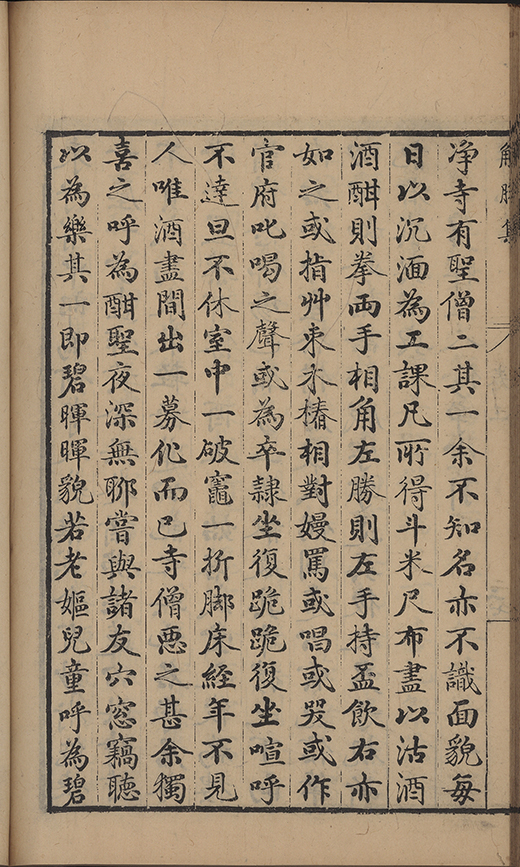 解脫集
净寺有聖僧二其一余不知名亦不識面貌每
日以沉湎為工課凡所得斗米尺布盡以沽酒
酒酣則拳両手相角左勝則左手持盃飲右亦
如之或指艸束木樁相對嫚罵或唱或哭或作
官府叱喝之聲或為卒隷坐復跪跪復坐喧呼
不達旦不休室中一破竈一折脚床経年不見
人唯酒盡間出一募化而已寺僧惡之甚余獨
喜之呼為酣聖夜深無聊嘗與諸友穴窓竊聴
以為樂其一即碧暉暉貌若老嫗兒童呼為碧